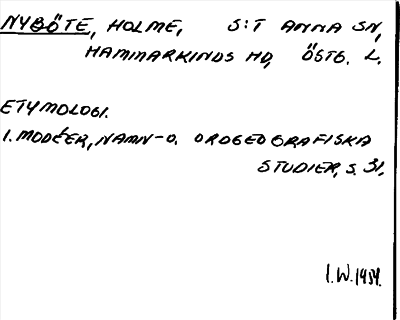 NYBÖTE, HOLME, S:T ANNA SN,
HAMMARKINDS HD, ÖSTG. L.
ETYMOLOGI.
I. MODÉER, NAMN- O. ORDGEOGRAFISKA
STUDIER, S. 31.
I.W. 1954.